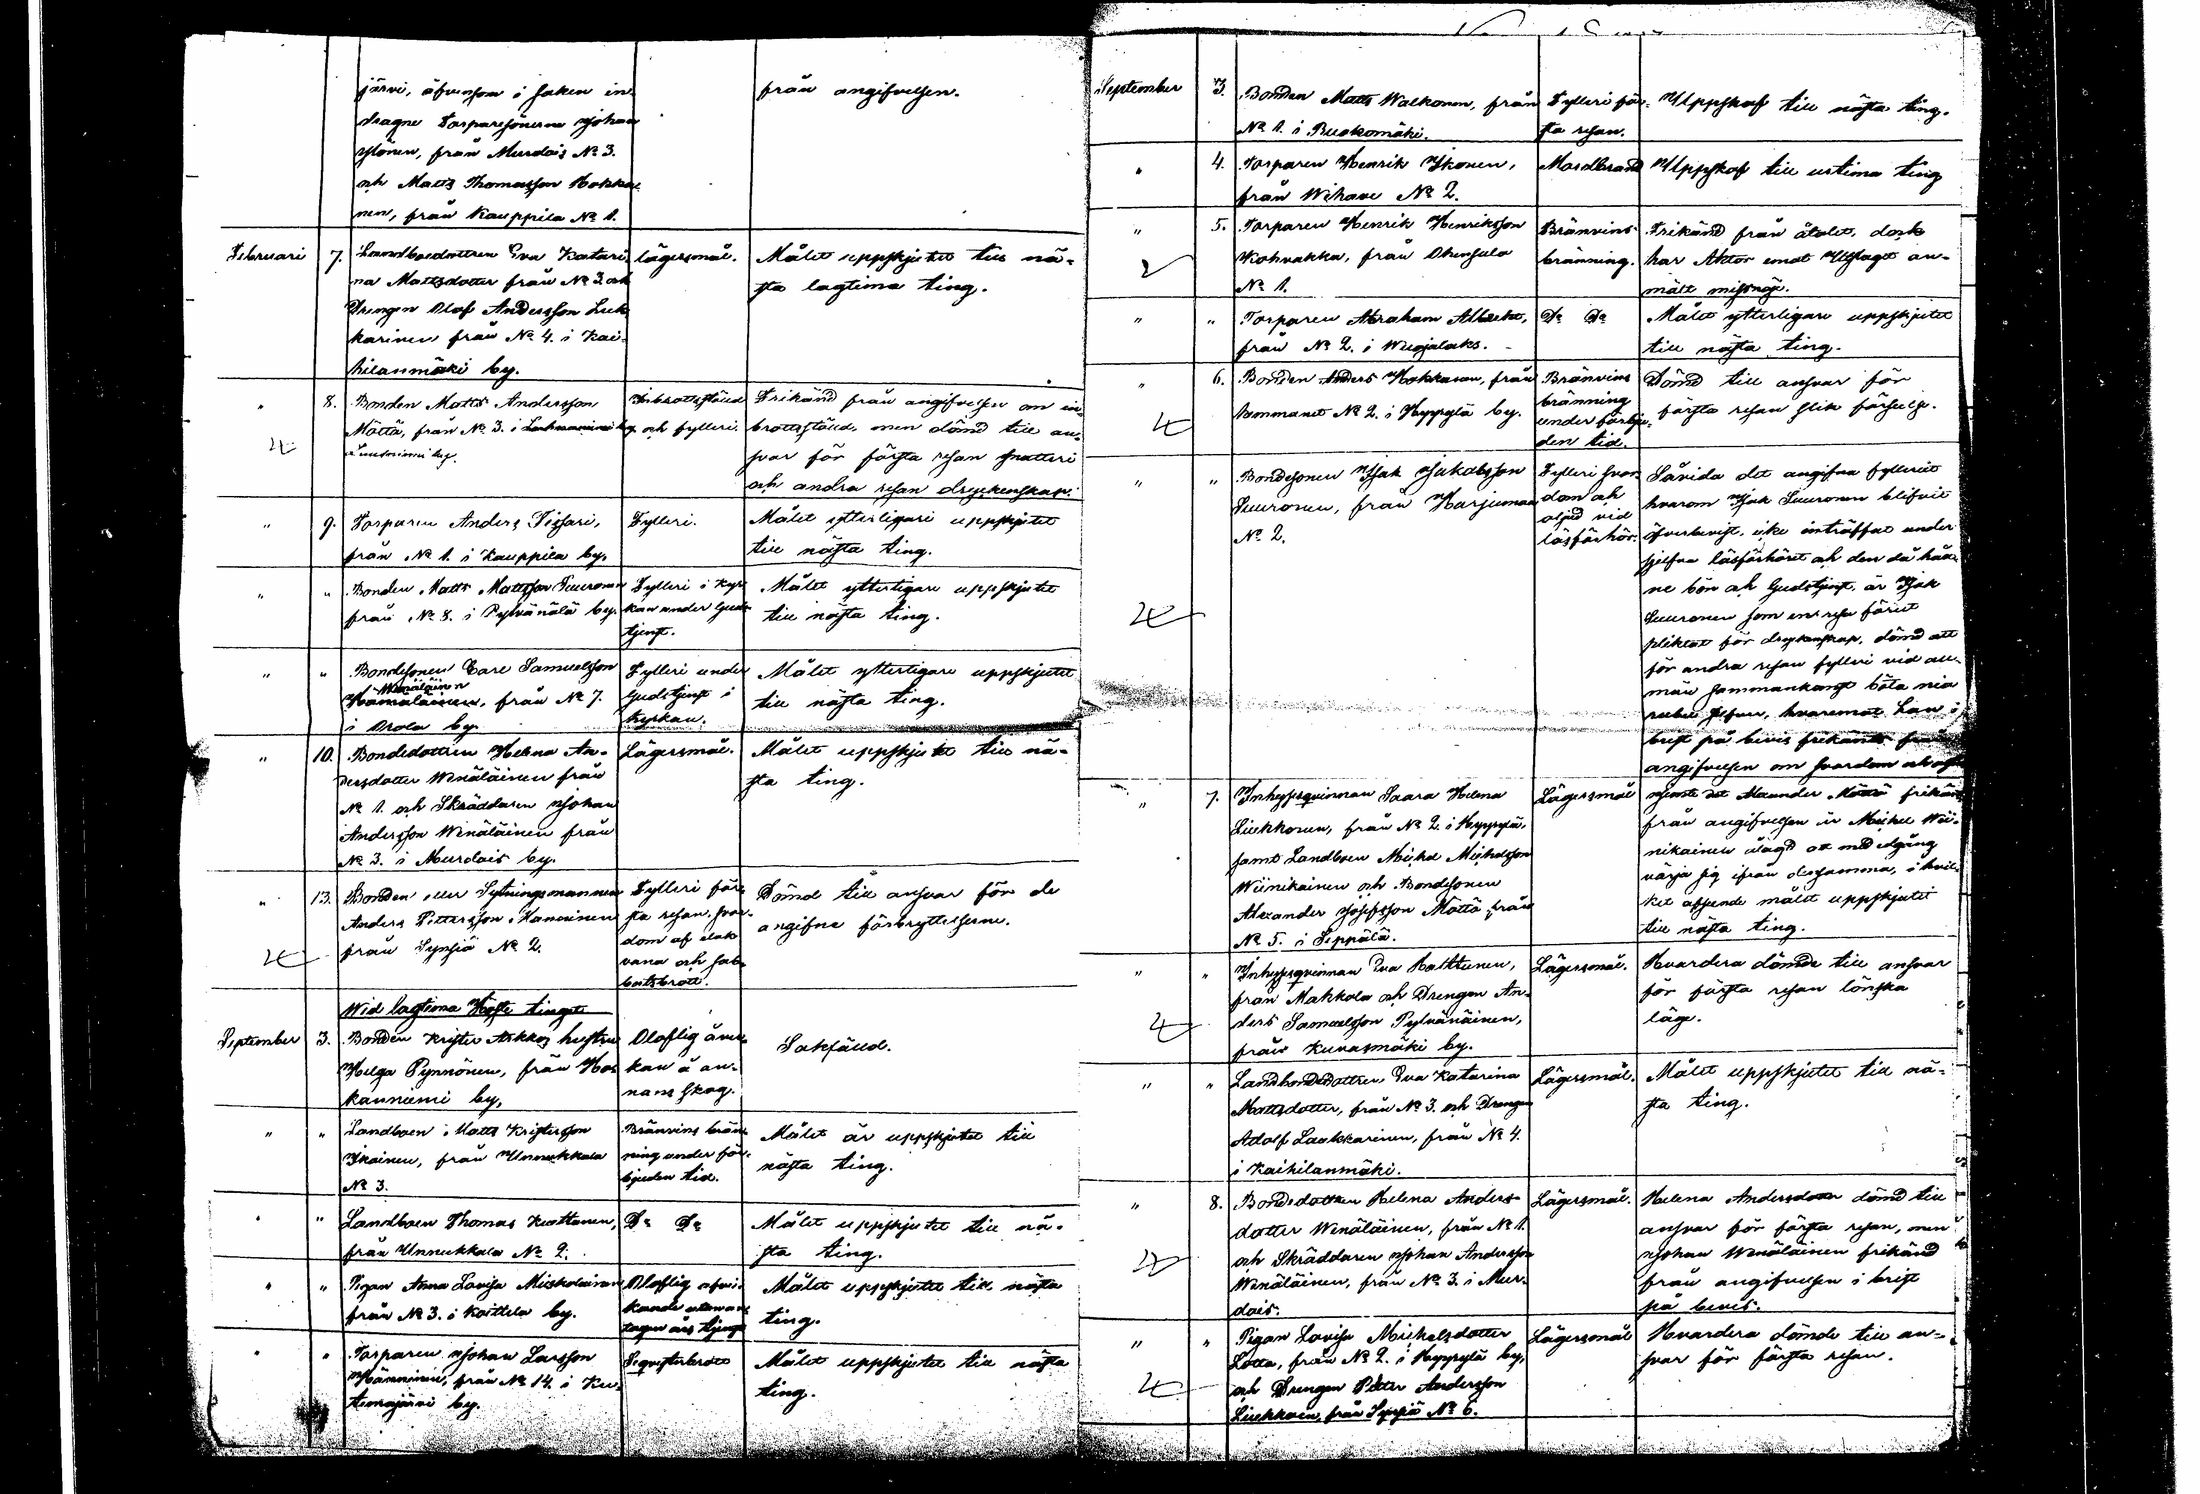 järvi, äfvensom i saken in
dragne Torparesönerne Johan
Ylönen, från Murdais No 3.
och Matts Thomasson Hokka
nen, från Kauppila No 1.
från angifvelsen.
Februari 7. Landboedottren Eva Katari
na Mattsdotter från No 3 och
Drengen Olof Andersson Luk
karinen från No 4. i Kai-
hilanmäki by.
lägersmål.
Målet uppskjutet till nä-
sta lagtima ting.
" 8. Bonden Matts Andersson
Möttä, från No 3. i
by.
Inbrottsstöld
och fylleri.
Frikänd från angifvelsen om in
brottsstöld, men dömd till an-
svar för första resan snatteri
och andra resan dryckenskap.
" 9. Torparen Anders Tissari,
från No 1. i Kauppila by.
Fylleri.
Målet ytterligare uppskjutet
till nästa ting.
" " Bonden Matts Mattsson Suuronen
från No 8. i Pylvänälä by.
Fylleri i kyr
kan under Gud
tjenst.
Målet ytterligare uppskjutet
till nästa ting.
" " Bondesonen Carl Samuelsson
Wenäläinen
Hämäläinen, från No 7.
i Orola by.
Fylleri under
Gudstjenst i
kyrkan.
Målet ytterligare uppskjutet
till nästa ting.
" 10. Bondedottren Helena An-
dersdotter Wenäläinen från
No 1. och Skräddaren Johan
Andersson Wenäläinen från
No 3. i Murdais by.
Lägersmål.
Målet uppskjutet till nä-
sta ting.
" 13. Bonden eller Sytningsmannen
Anders Pettersson Kanainen
från Synsiä No 2.
Fylleri för
sta resan, svor-
dom af elak
vana och sab
batsbrott.
Dömd till ansvar för de
angifne förbrytelserne.
Wid lagtima Höste tinget
September 3. Bonden Krister Askkos hustru
Helga Pynnönen, från Hos
kanniemi by,
Olaflig åver
kan å an-
nans skog.
Sakfäld.
" " Landboen Matts Kristersson
Ikäinen, från Unnukkala
No 3.
Bränvins brän
ning under för-
bjuden tid.
Målet är uppskjutet till
nästa ting.
" " Landboen Thomas Kuttonen,
från Unnukkala No 2.
Do Do
Målet uppskjutet till nä-
sta ting.
" " Pigan Anna Lovisa Mieskolainen
från No 3. i Koittila by.
Olaflig afvi-
kande
tagen års tjenst
Målet uppskjutet till nästa
ting.
" " Torparen Johan Larsson
Hänninen, från No 14. i Ku-
temajärvi by.
Seqvesterbrott
Målet uppskjutet till nästa
ting.
September 3. Bonden Matts Walkonen, från
No 1. i Ruokomäki.
Fylleri för-
sta resan.
Uppskof till nästa ting.
" 4. Torparen Henrik Ikonen,
från Wihave No 2.
Mordbrand
Uppskof till urtima ting
" 5. Torparen Henrik Henriksson
Kohvakka, från Ohensalo
No 1.
Bränvins
bränning.
Frikänd från åtalet, dock
har Aktor emot Utslaget an-
mält missnöje.
" " Torparen Abraham Albrekt,
från No 2. i Wuojalaks.
Do Do
Målet ytterligare uppskjutet
till nästa ting.
" 6. Bonden Anders Hokkanen, från
No 2. i Kyppylä by.
Bränvins
bränning
under förbju-
den tid.
Dömd till ansvar för
första resan slik förseelse.
" " Bondesonen Isak Jakobsson
Suuronen, från Harjumaa
No 2.
Fylleri svor-
dom och
oljud vid
läsförhör.
Såvida det angifna fylleriet
hvarom Isak Suuronen blifvit
öfverbevist, icke inträffat under
sjelfva läsförhöret och den då håll
ne bön och Gudstjenst, är Isak
Suuronen som en resa förut
pliktat för dryckenskap, dömd att
för andra resan fylleri vid all-
män sammankomst böta nio
rubel silfver, hvaremot han i
brist på bevis frikänts från
angifvelsen om svordom och
" 7. Inhyses qvinnan Saara Helena
Liukkonen, från No 2. i Kyppylä,
samt Landboen Michel Michelsson
Wiinikainen och Bondesonen
Alexander Josefsson Möttö från
No 5. i Seppälä.
Lägersmål
Jemte det Alexander Möttö frikänts
från angifvelsen är Michel Wii-
nikainen ålagd att med edgång
värja sig ifrån densamma, i hvil-
ket afseende målet uppskjutet
till nästa ting.
" " Inhyses qvinnan Eva Halttunen,
från Makkola och Drengen An-
ders Samuelsson Pylvänäinen,
från Kuvasmäki by.
Lägersmål.
Hvardera dömde till ansvar
för första resan lönska
läge.
" " Landbondedottren Eva Katarina
Mattsdotter, från No 3. och Drengen
Adolf Laukkarinen, från No 4.
i Kaihilanmäki.
Lägersmål.
Målet uppskjutet till nä-
sta ting.
" 8. Bondedottren Helena Anders
dotter Wenäläinen, från No 1.
och Skräddaren Johan Andersson
Wenäläinen, från No 3. i Mur-
dais.
Lägersmål.
Helena Andersdotter dömd till
ansvar för första resan, men
Johan Wenäläinen frikänd
från angifvelsen i brist
på bevis.
" " Pigan Lovisa Michelsdotter
Lotta, från No 2. i Kyppylä by,
och Drengen Petter Andersson
Liukkonen, från Synsiä No 6.
Lägersmål
Hvardera dömde till an-
svar för första resan.